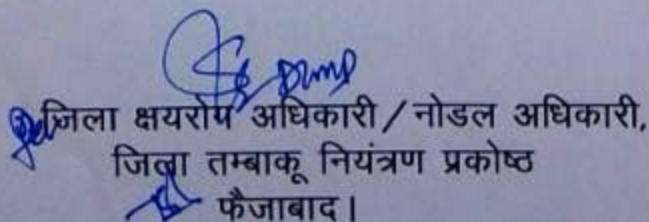 जिला क्षयरोग अधिकारी/नोडल अधिकारी,
जिला तम्बाकू नियंत्रण प्रकोष्ठ
फैजाबाद।